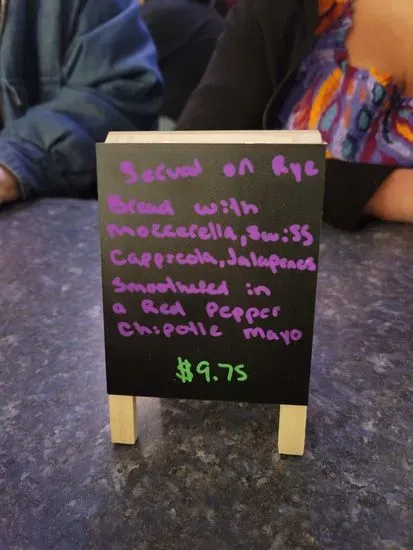 Served on Rye
Bread with
mozzerella, Swiss
Cappicola, Jalapenos
Smoothered in
a Red Pepper
Chipotle mayo
$9.75